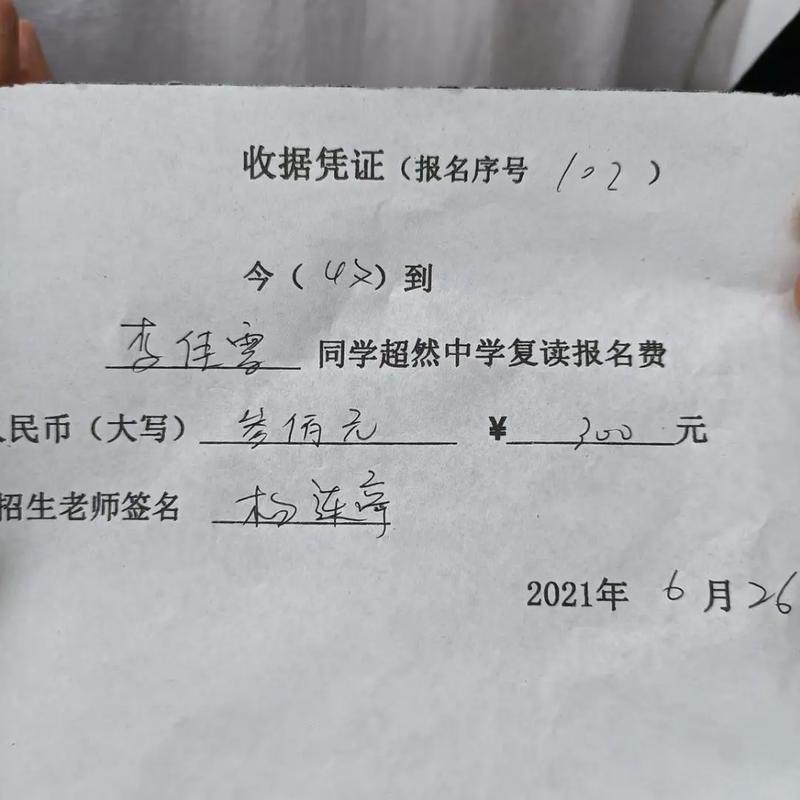 收据凭证（报名序号 102）
今（收）到
李佳雪 同学超然中学复读报名费
人民币（大写）叁佰元 ¥ 300 元
招生老师签名 杨连萍
2021年 6 月 26